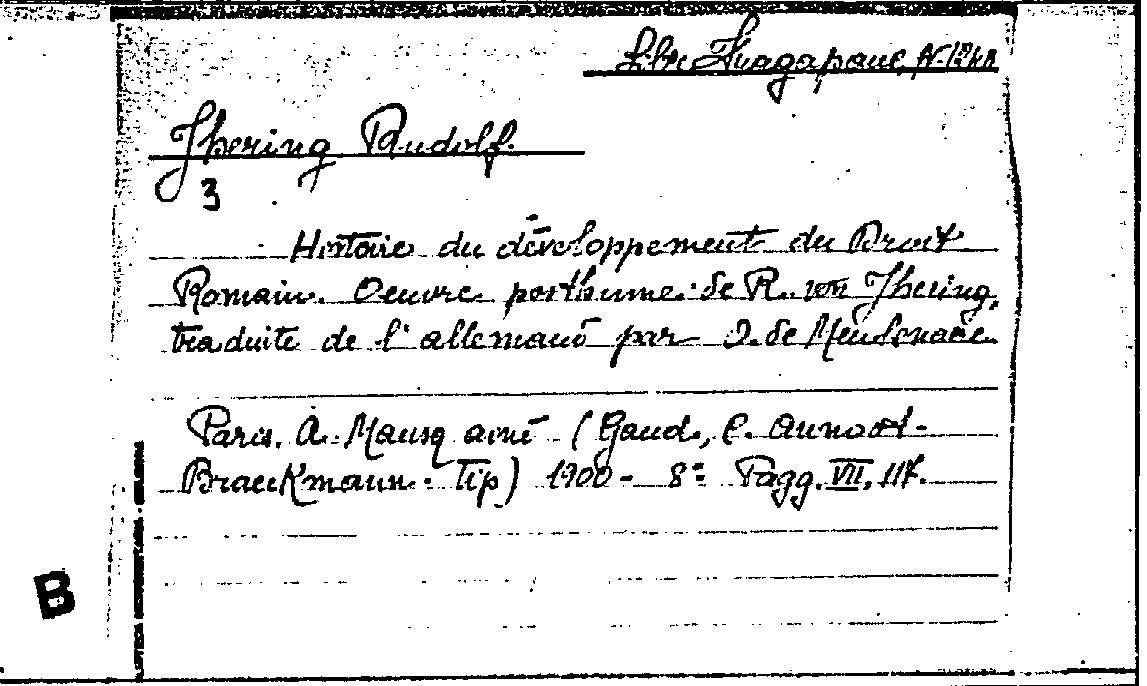 Jhering Rudolf.
3
Histoire du développement du Droit
Romain. Oeuvre posthume de R. von Jhering,
traduite de l'allemand par O. de Meulenaere
Paris. A. aîné (Gand, C. Annoot-
Braeckmann. Tip) 1900 - 8º Pagg. VII, 117.
B